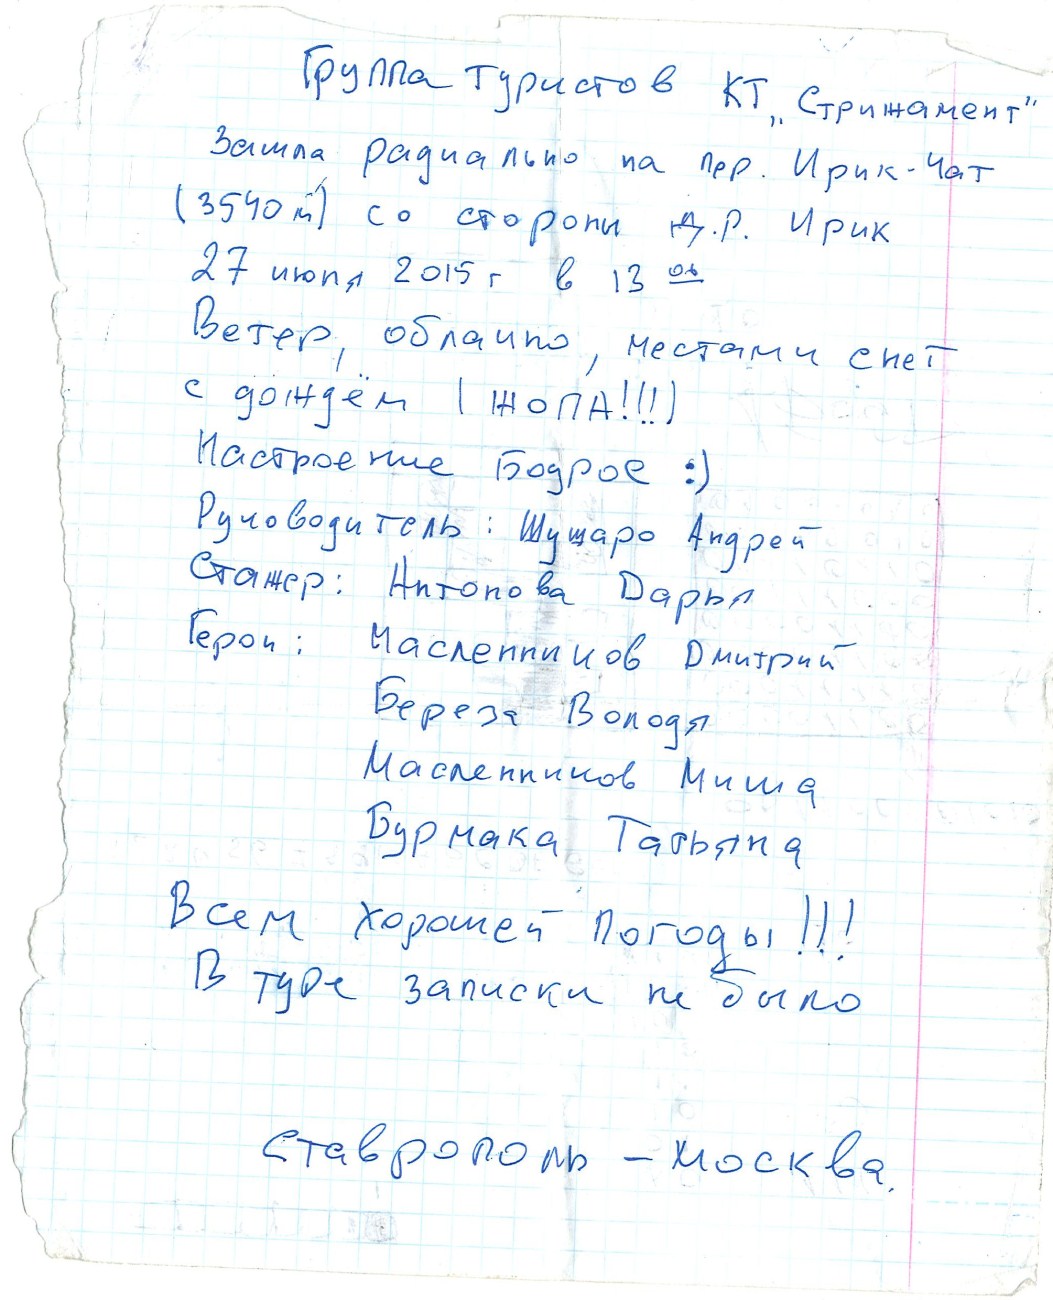 Группа туристов КТ „Стрижамент"
Зашла радиально на пер. Ирик-Чат
(3540 м) со стороны д.р. Ирик
27 июня 2015 г в 13 00
Ветер, облачно, местами снег
с дождём (ЖОПА!!!)
Настроение Бодрое :)
Руководитель: Шущаро Андрей
Стажер: Антонова Дарья
Герои: Масленников Дмитрий
Береза Володя
Масленников Миша
Бурмака Татьяна
Всем хорошей погоды!!!
В туре записки не было
Ставрополь – Москва.